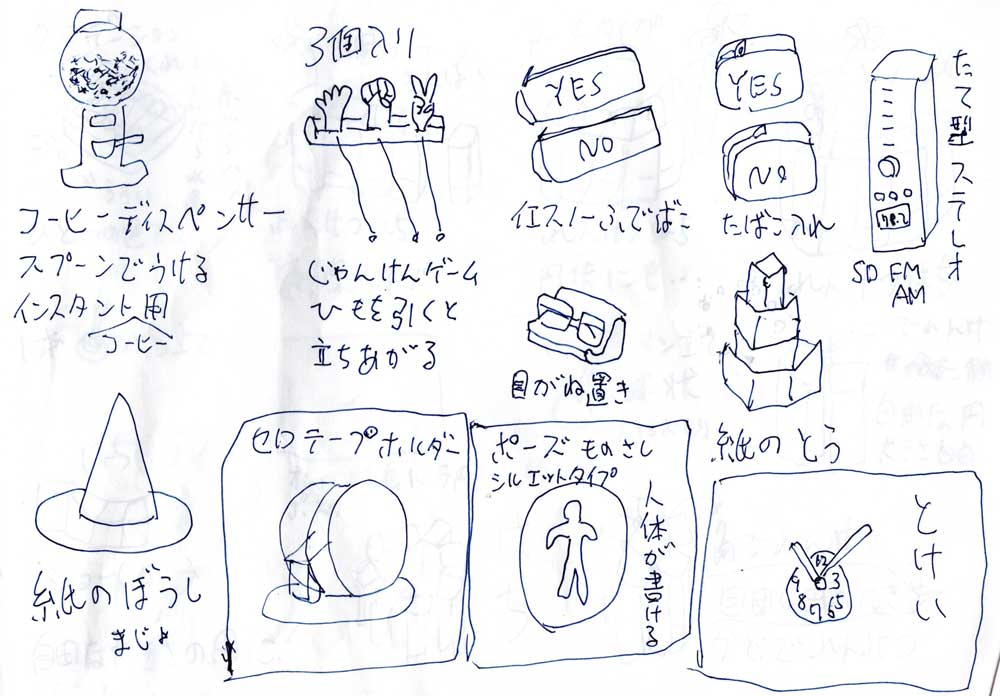 コーヒーディスペンサー
スプーンでうける
インスタント用
コーヒー
3個入り
じゃんけんゲーム
ひもを引くと
立ちあがる
YES
NO
イエスノーふでばこ
YES
NO
たばこ入れ
たて型ステレオ
78.2
SD FM
AM
目がね置き
紙のとう
紙のぼうし
まじょ
セロテープホルダー
ポーズものさし
シルエットタイプ
人体が書ける
とけい
12
9 3
8 7 6 5